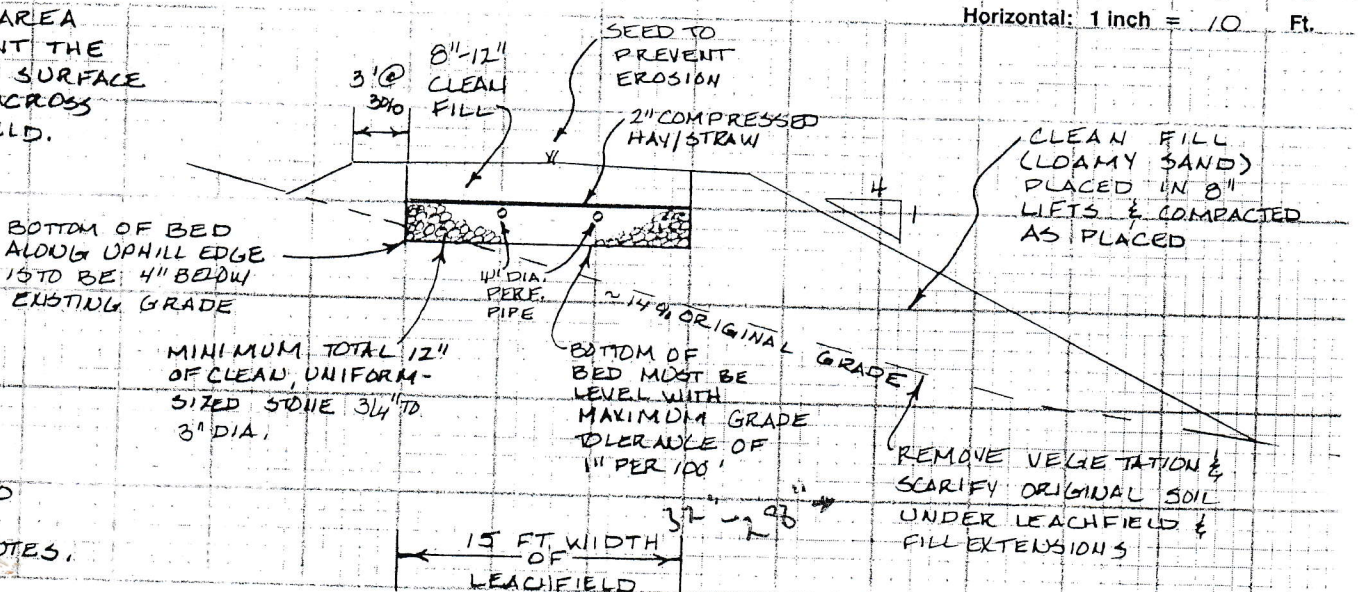 AREA
NT THE
SURFACE
ACROSS
ELD.
Horizontal: 1 inch = 10 Ft.
3' @
3%
8"-12"
CLEAN
FILL
SEED TO
PREVENT
EROSION
2" COMPRESSED
HAY/STRAW
CLEAN FILL
(LOAMY SAND)
PLACED IN 8"
LIFTS & COMPACTED
AS PLACED
4
1
BOTTOM OF BED
ALONG UPHILL EDGE
IS TO BE 4" BELOW
EXISTING GRADE
4" DIA.
PERF.
PIPE
~14% ORIGINAL GRADE
MINIMUM TOTAL 12"
OF CLEAN, UNIFORM-
SIZED STONE 3/4" TO
3" DIA.
BOTTOM OF
BED MUST BE
LEVEL WITH
MAXIMUM GRADE
TOLERANCE OF
1" PER 100'
REMOVE VEGETATION &
SCARIFY ORIGINAL SOIL
UNDER LEACHFIELD &
FILL EXTENSIONS
OTES.
15 FT WIDTH
OF
LEACHFIELD